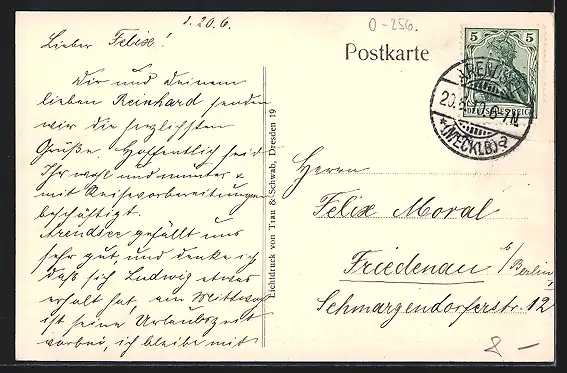 d. 20.6.
0-256.
Lieber Felix!
Dir und Deinem
lieben Reinhard senden
wir die herzlichsten
Grüße. Hoffentlich seid
Ihr wohl und munter &
mit Reisevorbereitungen
beschäftigt.
Arendsee gefällt uns
sehr gut, und denke ich
daß sich Ludwig etwas
erholt hat, am Mittwoch
ist seine Urlaubszeit
vorbei, ich bleibe mit
Lichtdruck von Trau & Schwab, Dresden 19
Postkarte
5 5
DEUTSCHES REICH
ARENDSEE
(MECKLB)
Herrn
Felix Moral
Friedenau b/Berlin,
Schmargendorferstr. 12
8 –